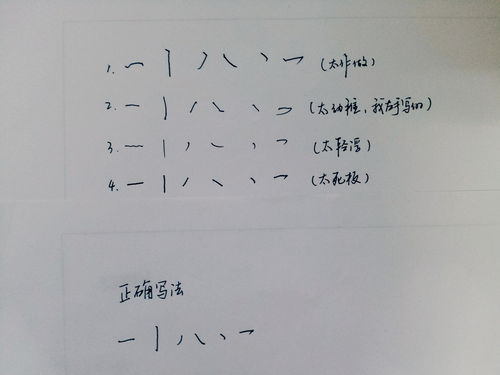 1. 一 丨 丿 ㇏ 丶 ㇀ (太作做)
2. 一 丨 丿 ㇏ 丶 ㇀ (太幼稚，我左手写的)
3. 一 丨 丿 ㇏ 丶 ㇀ (太轻浮)
4. 一 丨 丿 ㇏ 丶 ㇀ (太死板)
正确写法
一 丨 丿 ㇏ 丶 ㇀